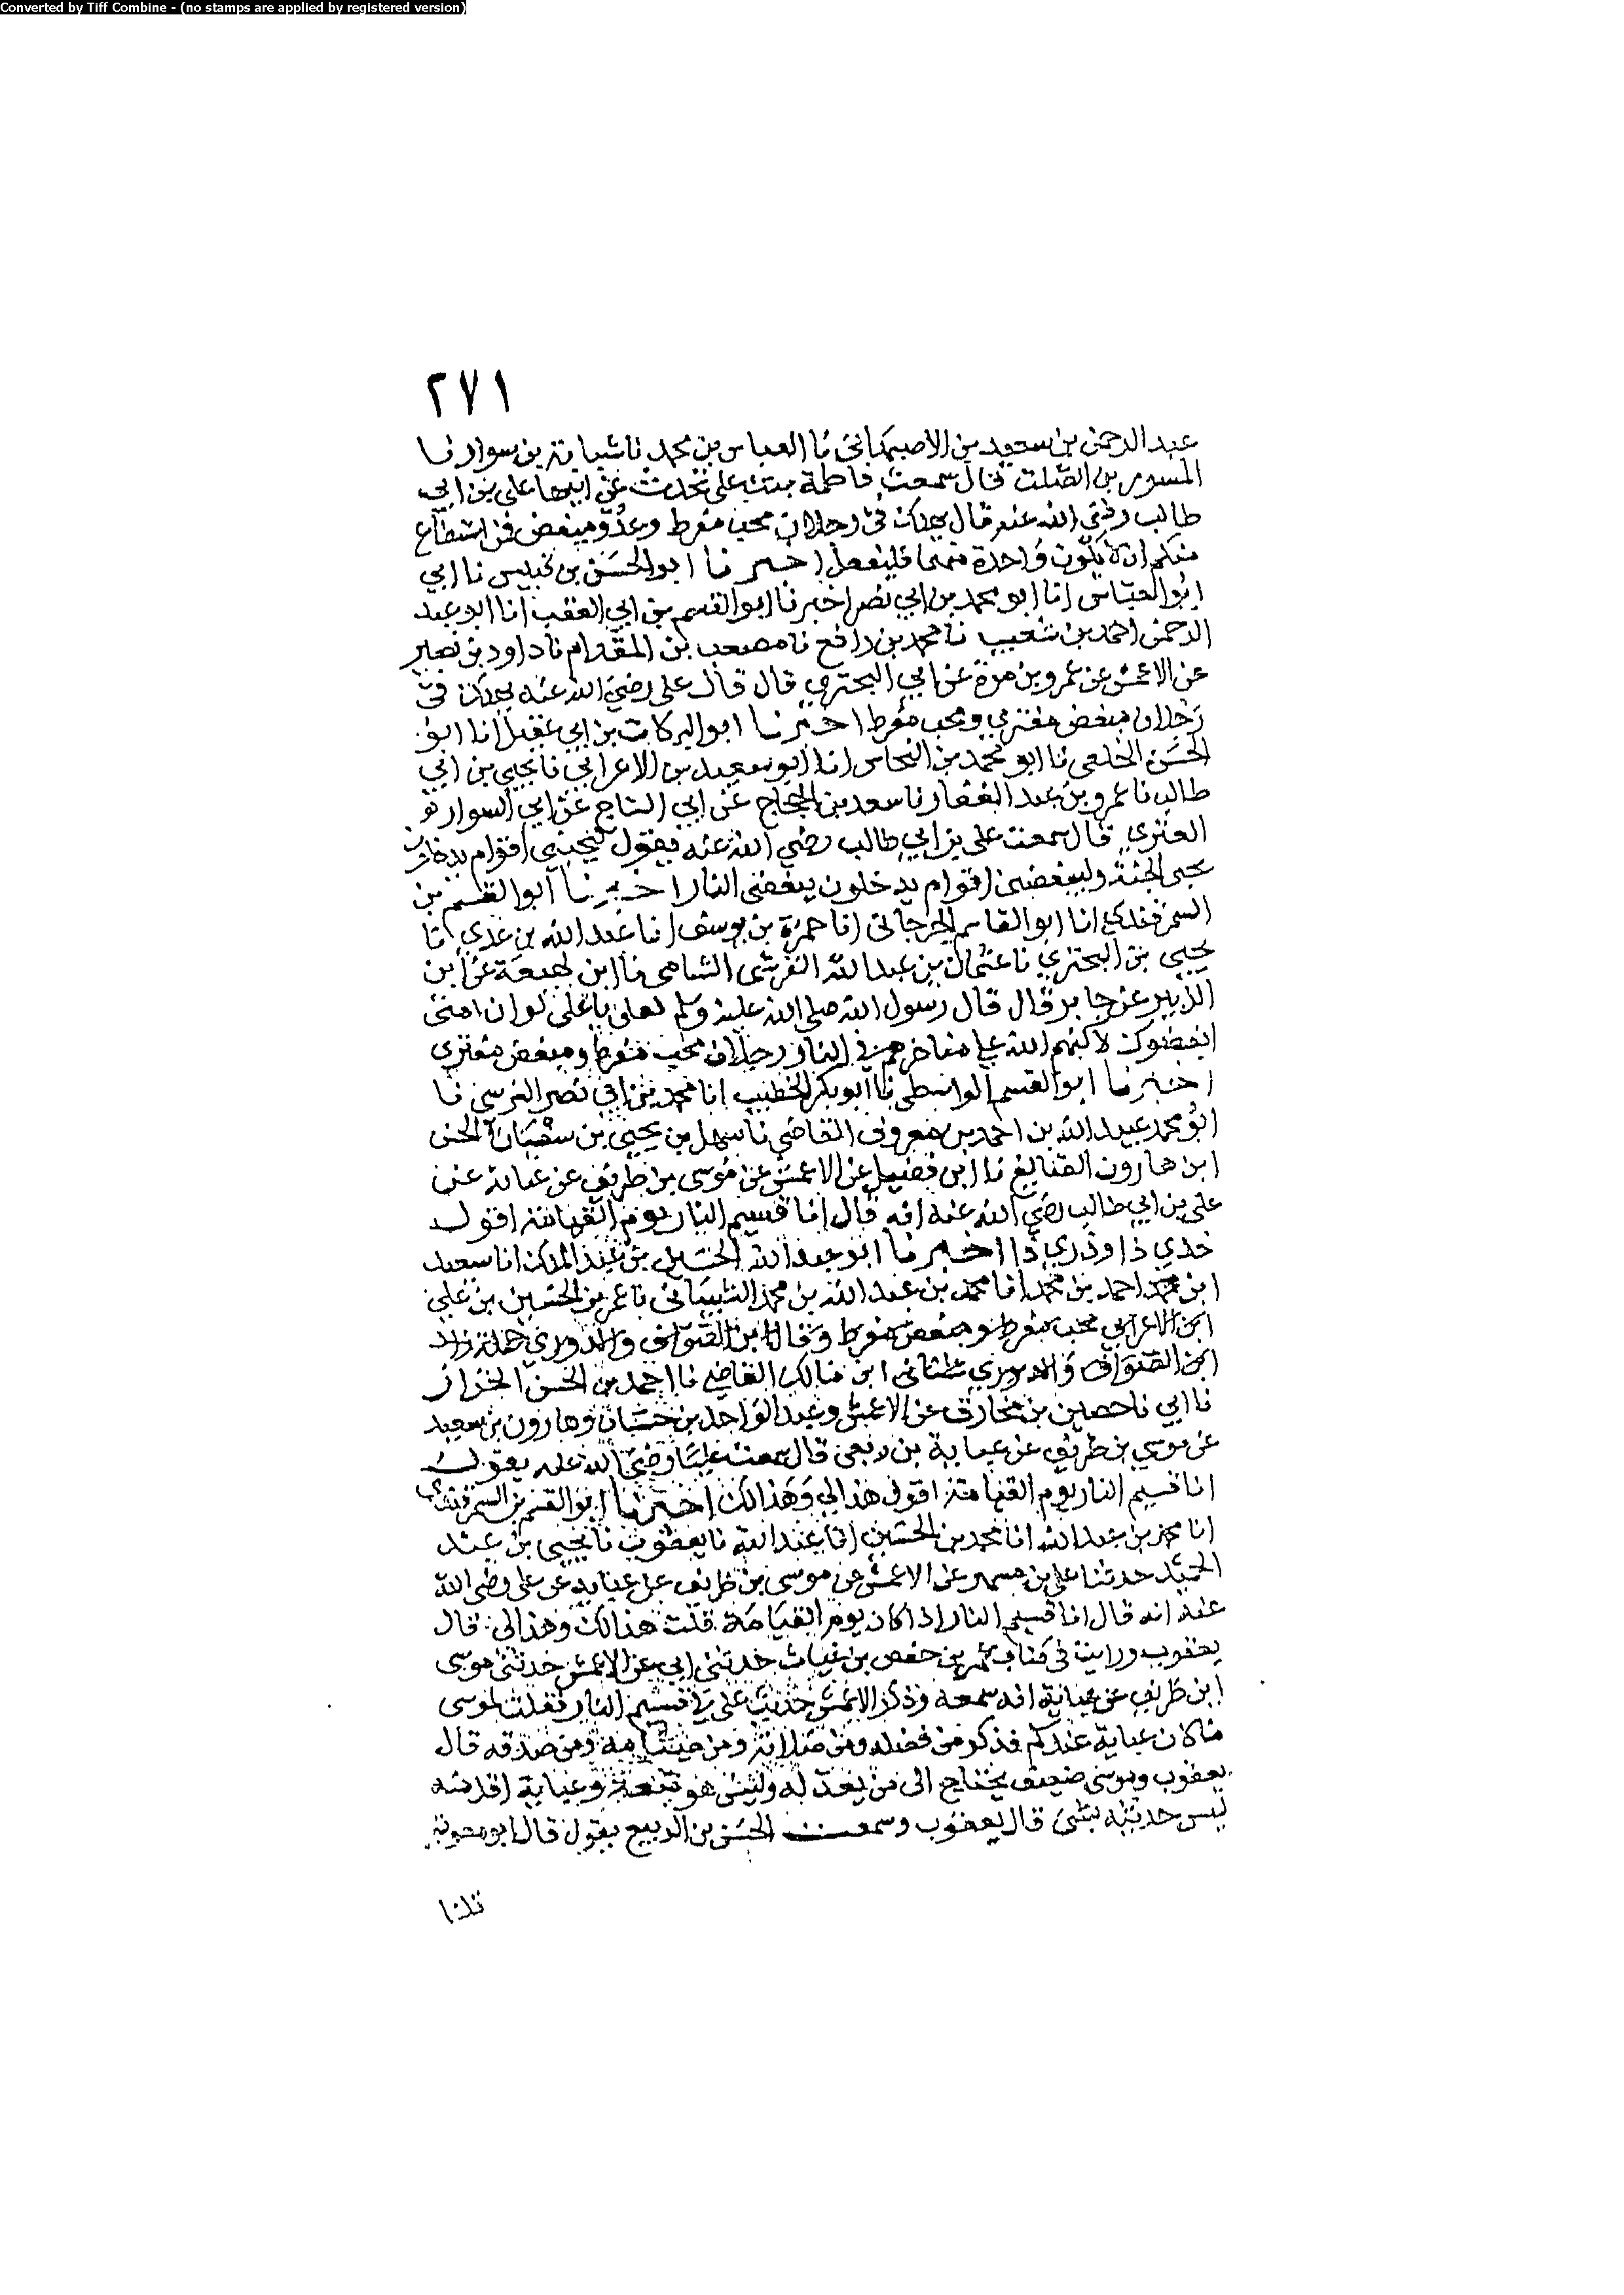 Converted by Tiff Combine - (no stamps are applied by registered version)
٢٧١
عبد الرحمن بن سعيد بن الاصبهاني نا العباس بن محمد نا شبابة بن سوار نا
المسور بن الصلت قال سمعت فاطمة بنت علي تحدث عن ابيها علي بن ابي
طالب رضي الله عنه قال يهلك في رجلان محب مفرط وعدو مبغض فمن استطاع
منكم ان لا يكون واحدة منهما فليفعل اخبرنا ابو الحسن بن قبيس نا ابي
ابو العباس انا ابو محمد بن ابي نصر اخبرنا ابو القسم بن ابي العقب انا ابو عبد
الرحمن احمد بن شعيب نا محمد بن رافع نا مصعب بن المقدام نا داود بن نصير
عن الاعمش عن عمرو بن مرة عن ابي البختري قال قال علي رضي الله عنه يهلك في
رجلان مبغض مفتري ومحب مفرط اخبرنا ابو البركات بن ابي عقيل انا ابو
الحسن الخلعي نا ابو محمد بن النحاس انا ابو سعيد بن الاعرابي نا يحيى بن ابي
طالب نا عمرو بن عبد الغفار نا سعد بن الحجاج عن ابي التياح عن ابي السوار
العنزي قال سمعت علي بن ابي طالب رضي الله عنه يقول ليحبني اقوام يدخلون
بحبي الجنة وليبغضني اقوام يدخلون ببغضي النار اخبرنا ابو القسم بن
السمرقندي انا ابو القاسم الجرجاني انا حمزة بن يوسف انا عبد الله بن عدي انا
يحيى بن البختري نا عثمان بن عبد الله القرشي الشامي نا ابن لهيعة عن ابن
الزبير عن جابر قال قال رسول الله صلى الله عليه وسلم لعلي يا علي لو ان امتي
ابغضوك لاكبهم الله على مناخرهم في النار رجلان محب مفرط ومبغض مفتري
اخبرنا ابو القسم الواسطي نا ابو بكر الخطيب انا محمد بن ابي نصر النرسي نا
ابو محمد عبيد الله بن احمد بن معروف القاضي نا سهل بن يحيى بن سفيان الحسن
ابن هارون الصايغ نا ابن فضيل عن الاعمش عن موسى بن طريف عن عباية عن
علي بن ابي طالب رضي الله عنه انه قال انا قسيم النار يوم القيامة اقول
خذي ذا وذري ذا اخبرنا ابو عبد الله الحسين بن عبد الملك انا سعيد
ابن محمد احمد بن محمد انا محمد بن عبد الله بن محمد الشيباني نا عمر بن الحسين بن علي
ابن الاعرابي محب مفرط ومبغض مفرط وقال ابن الصواف والدوري
ابن الصواف والدوري ابن مالك القاضي نا احمد بن الحسن الخزاز
نا ابي نا حصين بن مخارق عن الاعمش وعبد الواحد بن حسان وهارون بن سعيد
عن موسى بن طريف عن عباية بن ربعي قال سمعت عليا رضي الله عنه يقول
انا قسيم النار يوم القيامة اقول هذا لي وهذا لك اخبرنا ابو القسم بن السمرقندي
انا محمد بن عبد الله انا محمد بن الحسين انا عبد الله نا يعقوب نا يحيى بن عبد
الحميد حدثنا علي بن مسهر عن الاعمش عن موسى بن طريف عن عباية عن علي رضي الله
عنه انه قال انا قسيم النار اذا كان يوم القيامة قلت هذا لك وهذا لي قال
يعقوب ورايت في كتاب عمر بن حفص بن غياث حدثني ابي عن الاعمش حدثني موسى
ابن طريف عن عباية انه سمعه وذكر الاعمش حديث علي قسيم النار فقلت لموسى
ما كان عباية عندكم فذكر من فضله ومن صلاته ومن صيامه ومن صدقه قال
يعقوب وموسى ضعيف يحتاج الى من يعدله وليس هو بثقة وعباية اقل منه
ليس حديثه بشئ قال يعقوب وسمعت الحسن بن الربيع يقول قال ابو معوية
قلنا